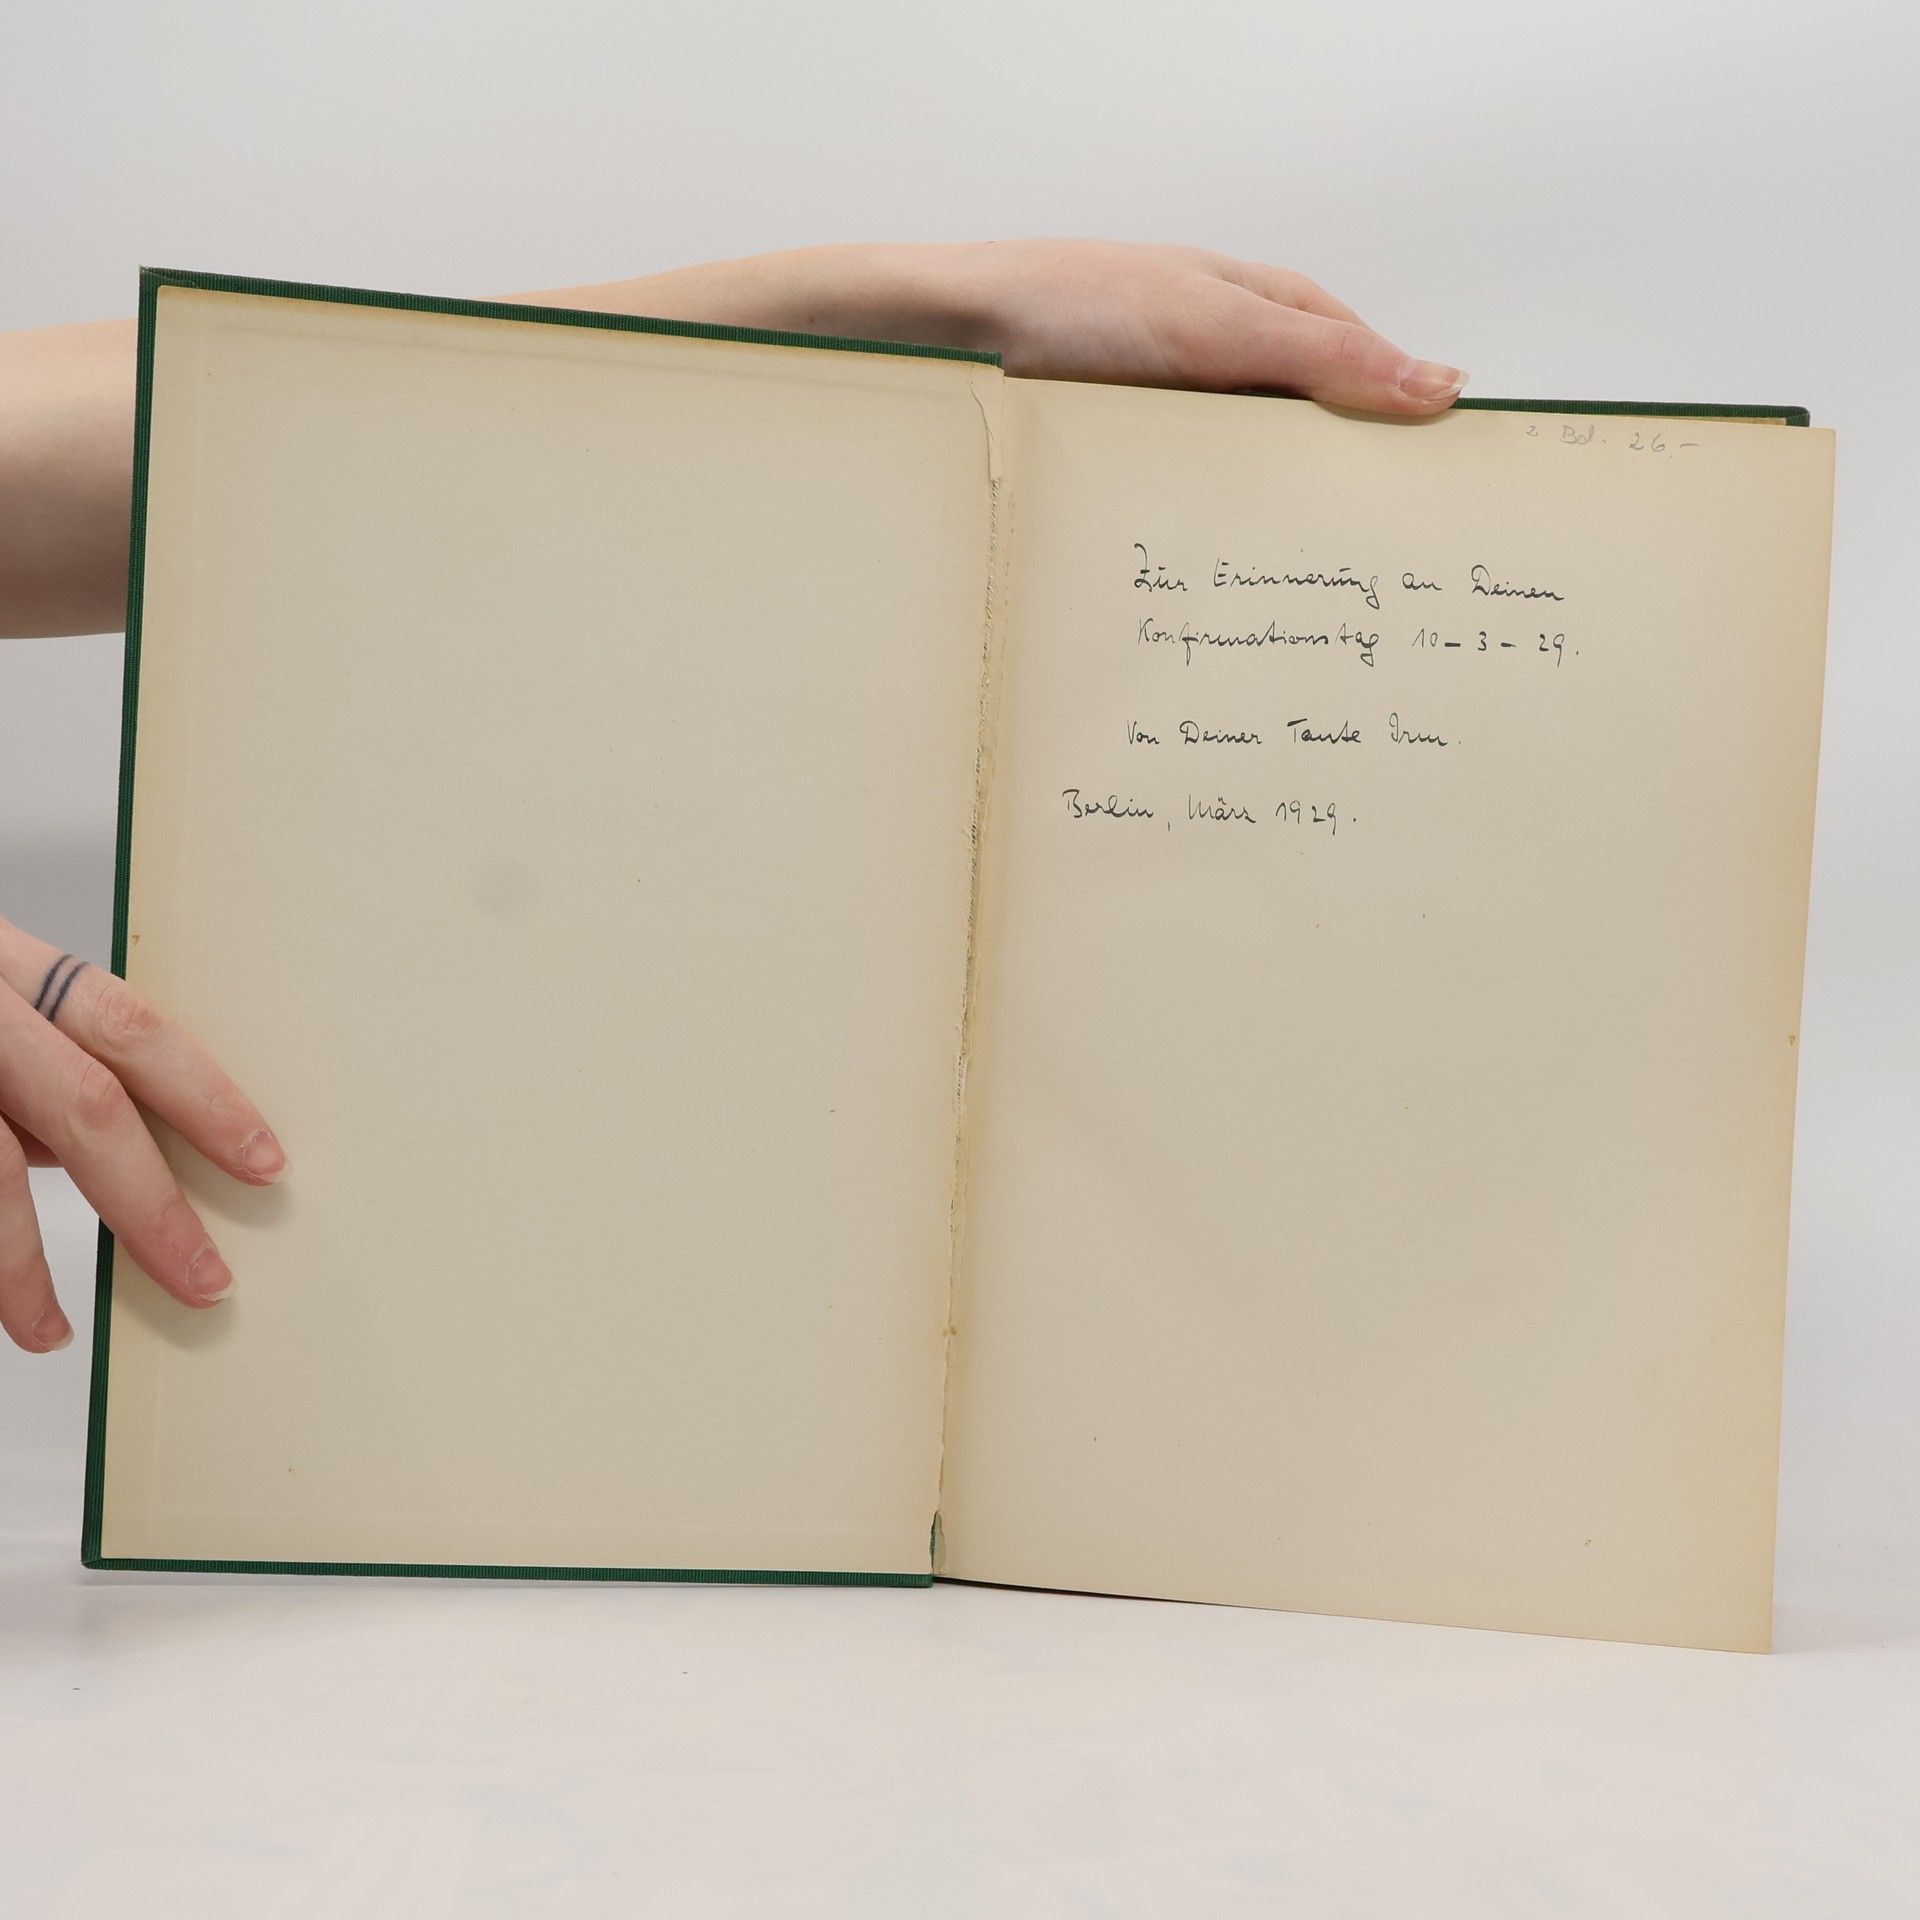 2 Bd. 26.-
Zur Erinnerung an Deinen
Konfirmationstag 10-3-29.
Von Deiner Tante Irm.
Berlin, März 1929.